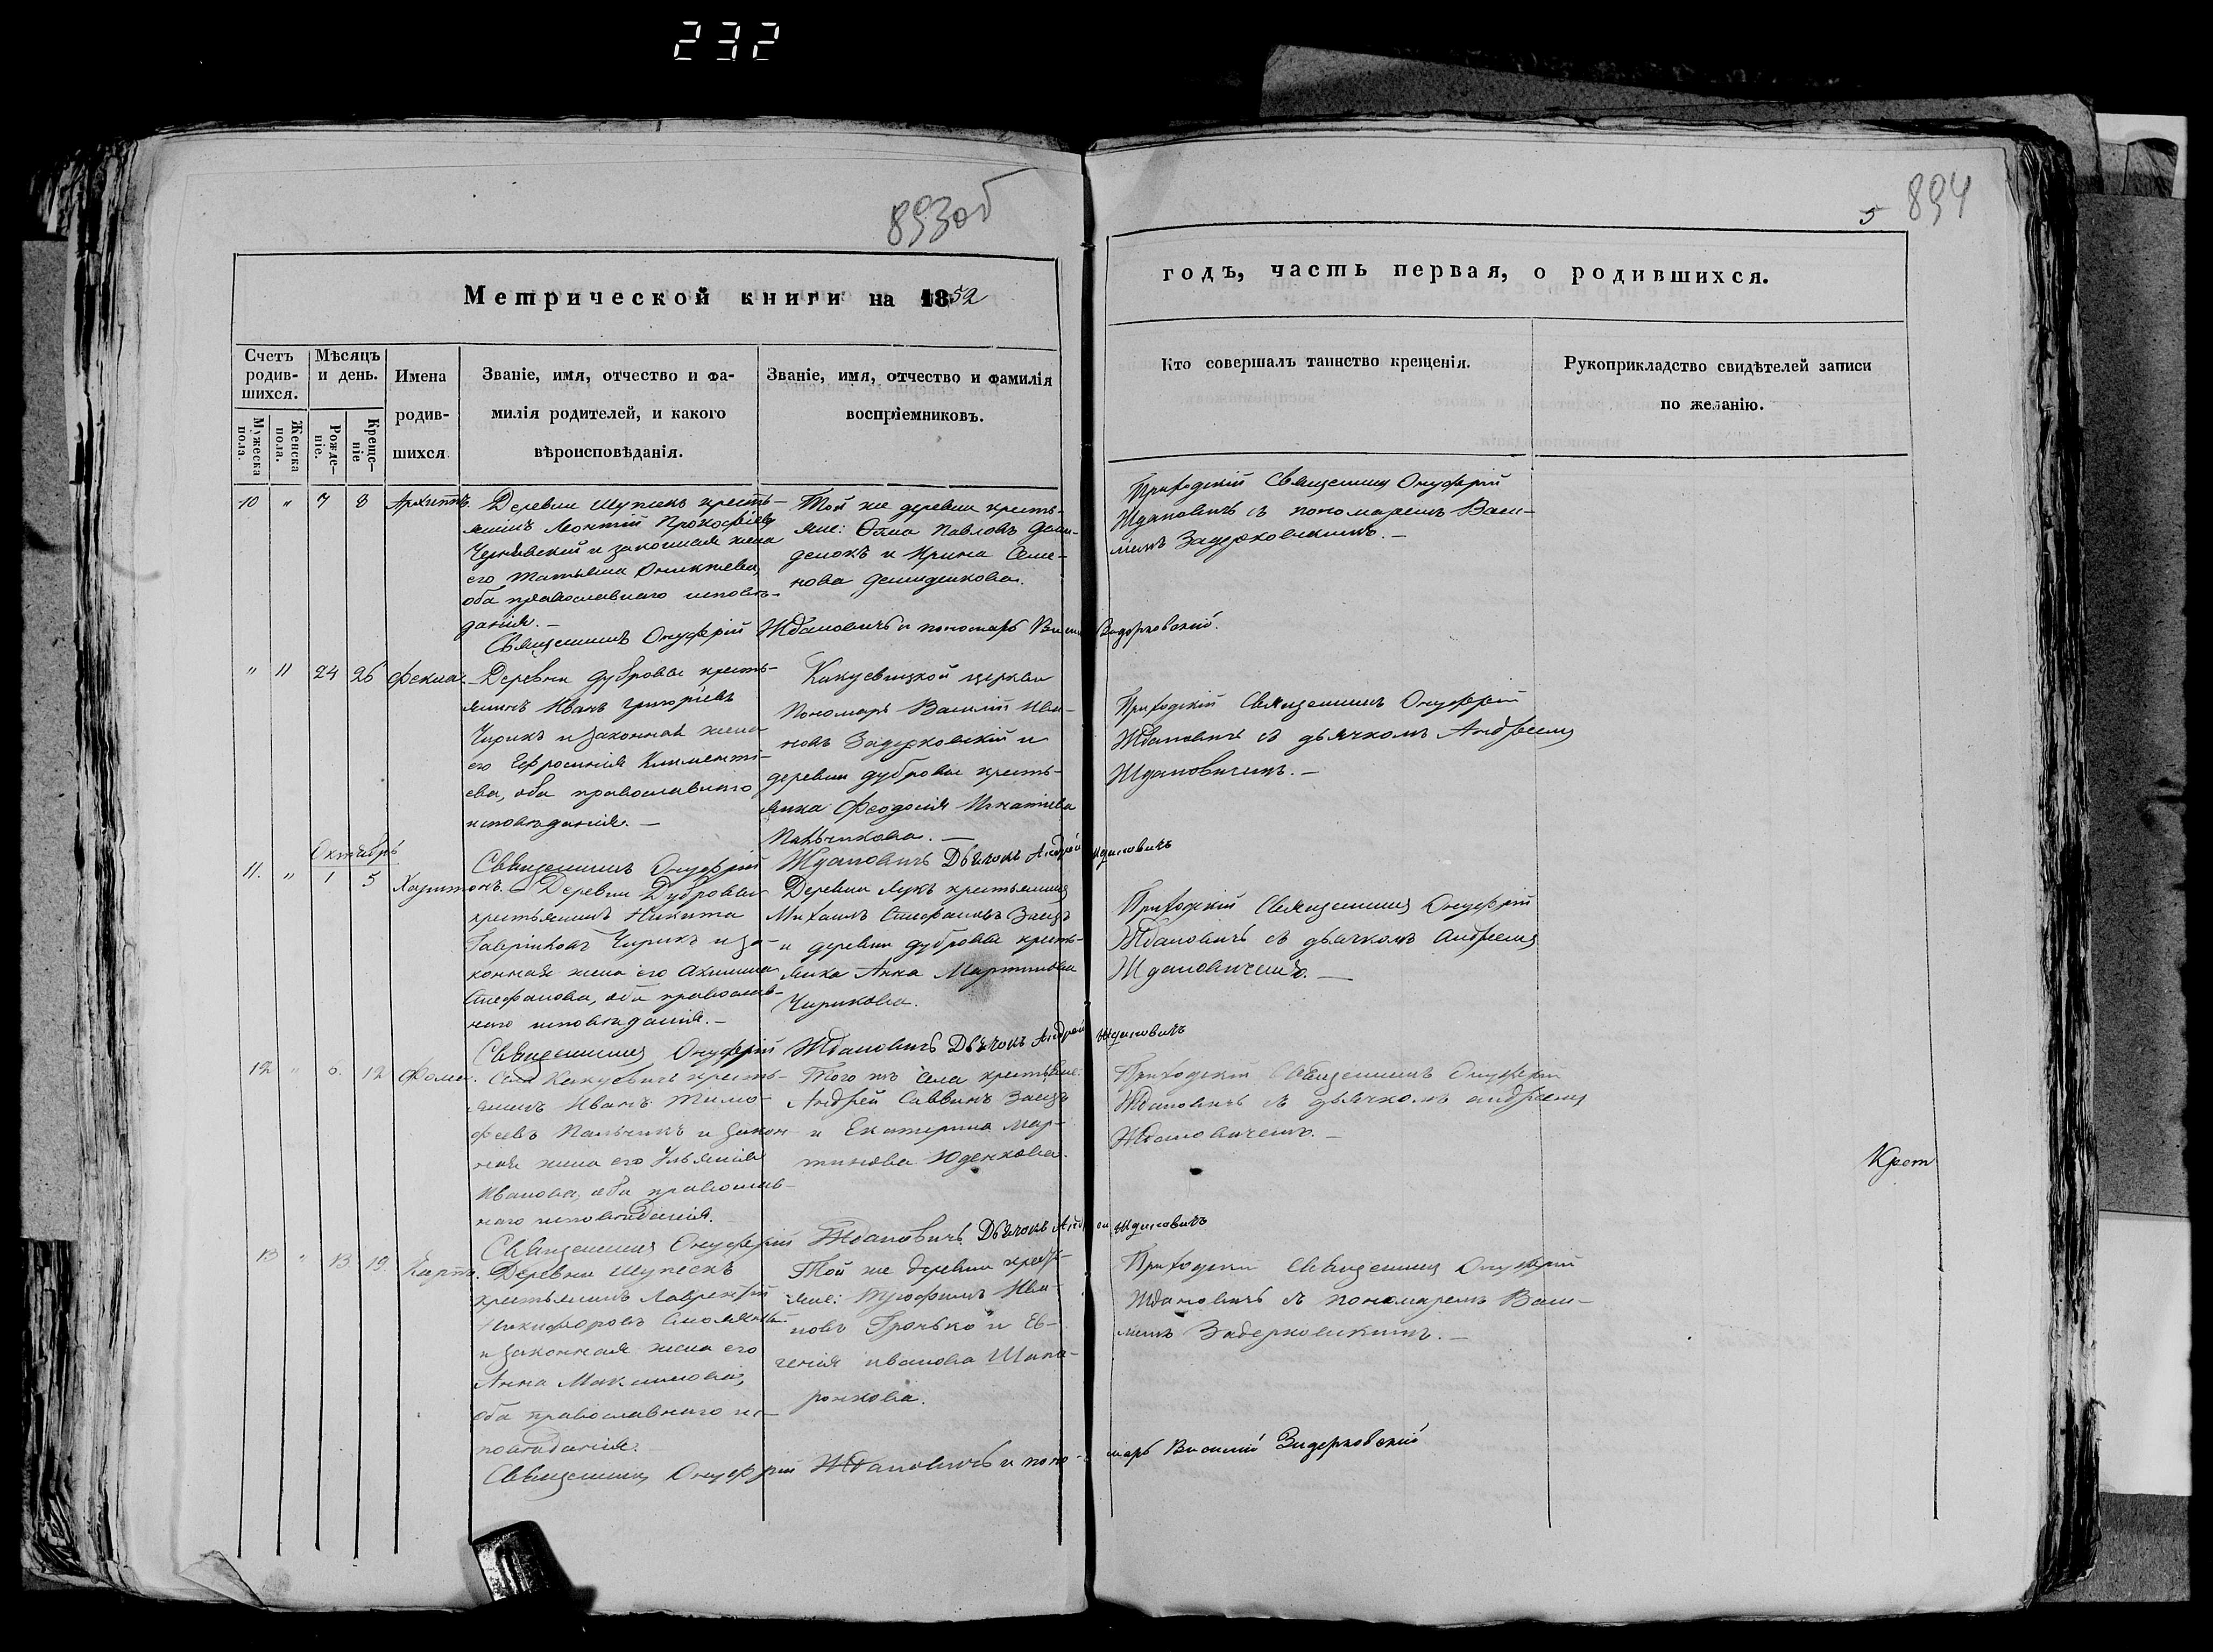 232
893об
894
5
Метрической книги на 1852
годъ, часть первая, о родившихся.
Счетъ родив-шихся.
Мужеска пола.
Женска пола.
Мѣсяцъ и день.
Рожде-ніе.
Креще-ніе
Имена
родив-
шихся
Званіе, имя, отчество и фа-
милія родителей, и какого
вѣроисповѣданія.
Званіе, имя, отчество и фамилія
воспріемниковъ.
Кто совершалъ таинство крещенія.
Рукоприкладство свидѣтелей записи
по желанію.
10 " 7 8 Архиппъ
Деревни Шупекъ кресть-
янинъ Леонтій Прокофіевъ
Чернявский и законная жена
его Татьяна
оба православнаго исповѣ-
данія. —
Той же деревни кресть-
яне: Фама Павловъ Деми-
денокъ и Ирина Семе-
нова Демиденкова.
Приходскій Священникъ Онуфрій
Ждановичъ съ пономаремъ Васи-
ліемъ Задерковскимъ. —
Священникъ Онуфрій Ждановичъ и пономарь Васил Задерковскій.
" 11 24 26 Фекла
Деревни Дубровы кресть-
янинъ Иванъ Григоріевъ
Чирикъ и законная жена
его Ефросинія Климентi-
ева, оба православнаго
исповѣданія. —
Какуевицкой церкви
Пономарь Василій Ива-
новъ Задерковскій и
деревни Дубровы кресть-
янка Феодосія Игнатіева
Пальчикова. —
Приходскій Священникъ Онуфрій
Ждановичъ съ дьячкомъ Андреемъ
Ждановичемъ. —
Священникъ Онуфрій Ждановичъ Дьячокъ Андрей Ждановичъ
Октябрь
11. " 1 5 Харитонъ.
Деревни Дубровы
крестьянинъ Никита
Гавріиловъ Чирикъ и за-
конная жена его Акилина
Стефанова, оба православ-
наго исповѣданія. —
Деревни Лукъ крестьянинъ
Михаилъ Стефановъ Заецъ
и деревни Дубровы кресть-
янка Анна Мартинова
Чирикова.
Приходскій Священникъ Онуфрій
Ждановичъ съ дьячкомъ Андреемъ
Ждановичемъ. —
Священникъ Онуфрій Ждановичъ Дьячокъ Андрей Ждановичъ
12 " 6. 12 Фома.
Села Какуевичъ кресть-
янинъ Иванъ Тимо-
феевъ Пальчикъ и закон
ная жена его Ульянія
Иванова, оба православ-
наго исповѣданія.
Того жъ села крестьяне:
Андрей Саввинъ Заецъ
и Екатерина Мар-
тинова Юденкова.
Приходскій Священникъ Онуфрій
Ждановичъ съ дьячкомъ Андреемъ
Ждановичемъ. —
Крот
Священникъ Онуфрій Ждановичъ Дьячокъ Андрей Ждановичъ
13 " 13 19. Карпъ.
Деревни Шупекъ
крестьянинъ Лаврентій
Никифоровъ
и законная жена его
Анна Максимова,
оба православнаго ис-
повѣданія.
Той же деревни кресть-
яне: Трофимъ Ива-
новъ Гронько и Ев-
генія Иванова Шапо-
ронкова.
Приходскій Священникъ Онуфрій
Ждановичъ съ пономаремъ Васи-
ліемъ Задерковскимъ. —
Священникъ Онуфрій Ждановичъ и поно-марь Василій Задерковскій